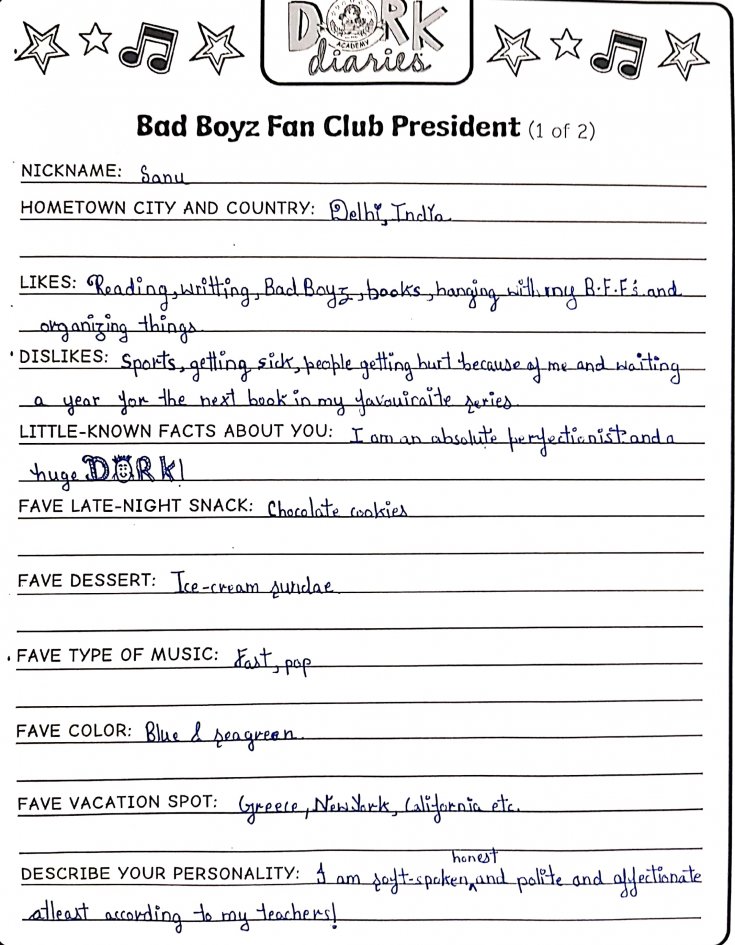 DORK
ACADEMY
diaries
Bad Boyz Fan Club President (1 of 2)
NICKNAME: Sanu
HOMETOWN CITY AND COUNTRY: Delhi, India
LIKES: Reading, writting, Bad Boyz, books, hanging with my B.F.F's and
organizing things
DISLIKES: Sports, getting sick, people getting hurt because of me and waiting
a year for the next book in my favouiraite series.
LITTLE-KNOWN FACTS ABOUT YOU: I am an absolute perfectionist and a
huge DORK!
FAVE LATE-NIGHT SNACK: Chocolate cookies
FAVE DESSERT: Ice-cream sundae
FAVE TYPE OF MUSIC: Fast, pop
FAVE COLOR: Blue & seagreen
FAVE VACATION SPOT: Greece, New York, California etc.
honest
DESCRIBE YOUR PERSONALITY: I am soft-spoken, and polite and affectionate
atleast according to my teachers!